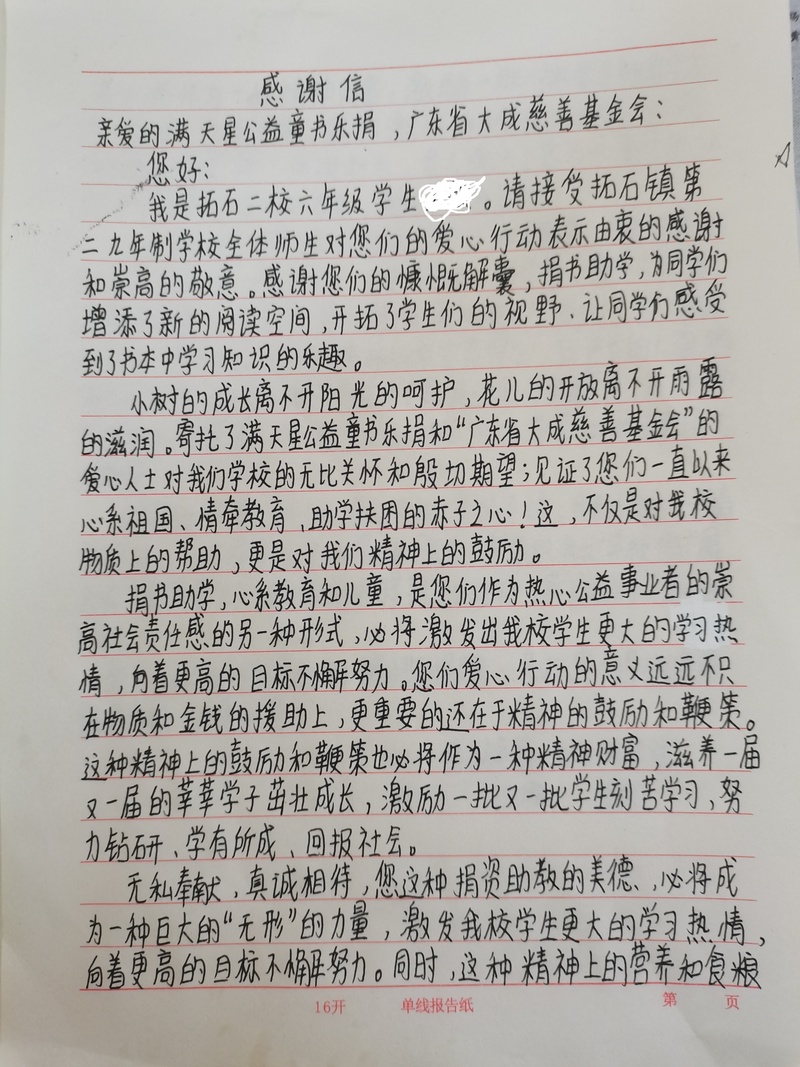 感谢信
亲爱的满天星公益童书乐捐，广东省大成慈善基金会：
您好：
我是拓石二校六年级学生。请接受拓石镇第
二九年制学校全体师生对您们的爱心行动表示由衷的感谢
和崇高的敬意。感谢您们的慷慨解囊，捐书助学，为同学们
增添了新的阅读空间，开拓了学生们的视野、让同学们感受
到了书本中学习知识的乐趣。
小树的成长离不开阳光的呵护，花儿的开放离不开雨露
的滋润。寄托了满天星公益童书乐捐和“广东省大成慈善基金会”的
爱心人士对我们学校的无比关怀和殷切期望；见证了您们一直以来
心系祖国、情牵教育，助学扶困的赤子之心！这，不仅是对我校
物质上的帮助，更是对我们精神上的鼓励。
捐书助学，心系教育和儿童，是您们作为热心公益事业者的崇
高社会责任感的另一种形式，必将激发出我校学生更大的学习热
情，向着更高的目标不懈努力。您们爱心行动的意义远远不只
在物质和金钱的援助上，更重要的还在于精神的鼓励和鞭策。
这种精神上的鼓励和鞭策也必将作为一种精神财富，滋养一届
又一届的莘莘学子茁壮成长，激励一批又一批学生刻苦学习、努
力钻研、学有所成、回报社会。
无私奉献，真诚相待，您这种捐资助教的美德、，必将成
为一种巨大的“无形”的力量，激发我校学生更大的学习热情，
向着更高的目标不懈努力。同时，这种精神上的营养和食粮
16开 单线报告纸 第 页